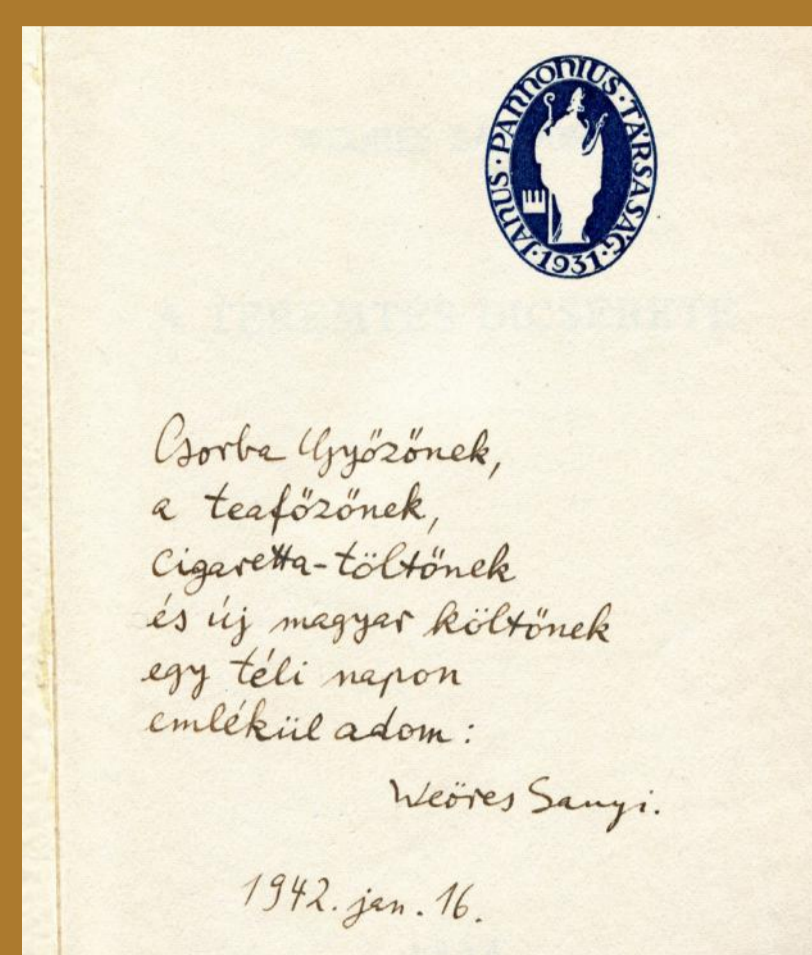 JANUS · PANNONIUS · TÁRSASÁG · 1931 ·
A TEREMTÉS DICSÉRETE
Csorba Győzőnek,
a teafőzőnek,
cigaretta-töltőnek
és új magyar költőnek
egy téli napon
emlékül adom:
Weöres Sanyi.
1942. jan. 16.